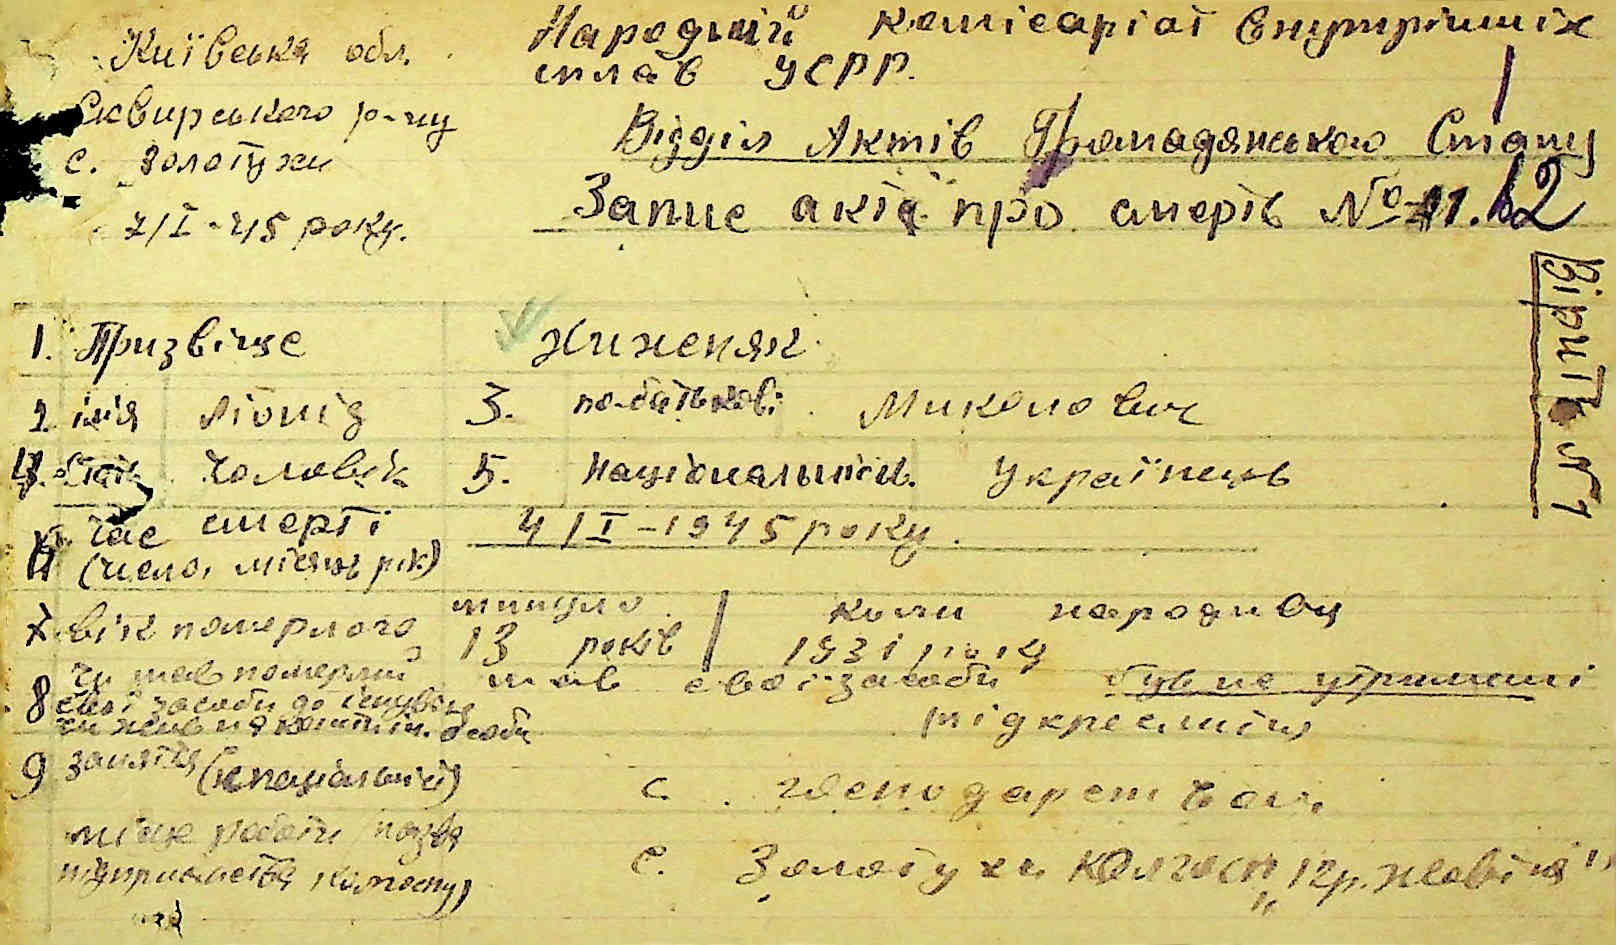 Київська обл.
Сквирського р-ну
с. Золотухи
7/I-45 року.
Народний комісаріат внутрішніх
справ УСРР.
Відділ Актів Громадянського Стану
Запис акта про смерть № 11. 2
1. Призвіще Жиженяк
2 імія Ліонід 3. по-батькові Миколович
4. Стать Чоловік 5. Національність. Українець
Час смерті 4/I-1945 року.
(число, місяць рік)
7 вік померлого минуло 13 років коли народивсь 1931 року
8 чи мав померлий
свої засоби до існування
чи жив на кошти ін. особи
мав свої засоби був на утриманні
підкреслить
9 заняття (спеціальність) с. господарст
місце роботи назва
підприємства колгоспу,
с. Золотухи колгосп „12 р. жовтня"
Вірить №1